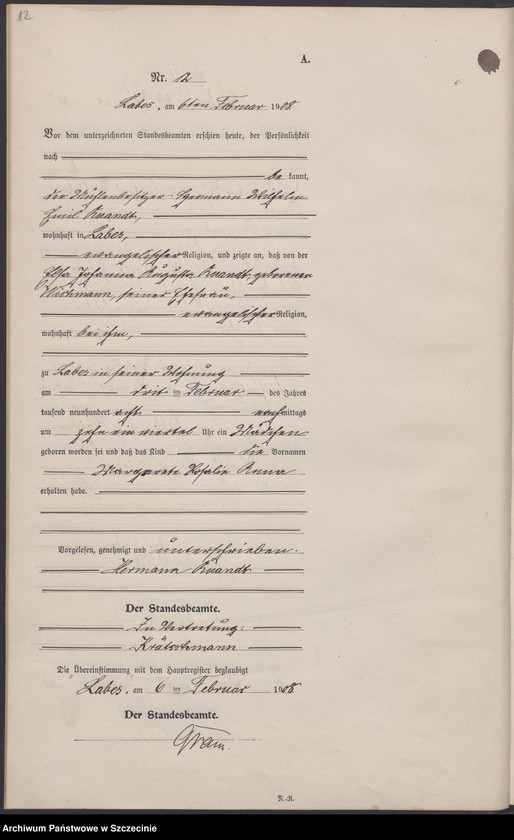 12
A.
Nr. 2
Labes, am 6ten Februar 1908
Vor dem unterzeichneten Standesbeamten erschien heute, der Persönlichkeit
nach
be kannt,
der Mühlenbesitzer Hermann Wilhelm
Emil Quandt,
wohnhaft in Labes,
evangelischer Religion, und zeigte an, daß von der
Elsa Johanna Augusta Quandt, geborenen
Wichmann, seiner Ehefrau,
evangelischer Religion,
wohnhaft bei ihm,
zu Labes in seiner Wohnung
am drit ten Februar des Jahres
tausend neunhundert acht nachmittags
um zehn ein viertel Uhr ein Mädchen
geboren worden sei und daß das Kind die Vornamen
Margarete Rosalie Anna
erhalten habe.
Vorgelesen, genehmigt und unterschrieben.
Hermann Quandt
Der Standesbeamte.
In Vertretung:
Die Übereinstimmung mit dem Hauptregister beglaubigt
Labes, am 6 ten Februar 1908
Der Standesbeamte.
N.-R.
Archiwum Państwowe w Szczecinie